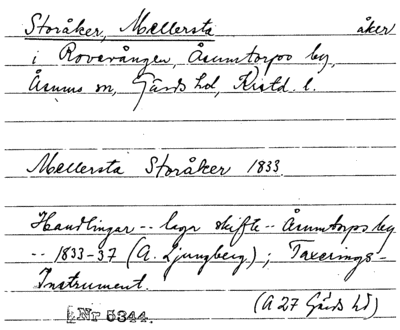 Storåker, Mellersta åker
i Rovevången, Åsumtorps by,
Åsums sn, Gärds hd, Kristd. l.
Mellersta Storåker 1833.
Handlingar -- laga skifte -- Åsumtorps by
-- 1833-37 (A. Ljungberg.) ; Taxerings-
Instrument.
(A 27 Gärds hd)
Nr 5344.